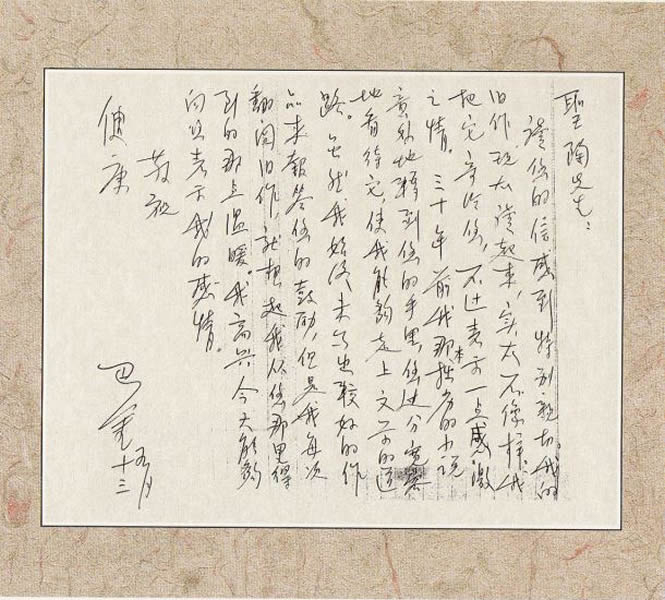 聖陶先生:
讀您的信感到特别親切。我的
旧作现在讀起来,实在不像样,我
把它寄给您,不过表示一点感激
之情。三十年前我那本拙劣的小说
意外地轉到您的手里,您过分寬容
地看待它,使我能夠走上文学的道
路。虽然我始终未写出较好的作
品来報答您的鼓励,但是我每次
翻阅旧作,就想起我从您那里得
到的那点温暖。我高兴今天能夠
向您表示我的感情。
敬祝
健康
巴金
五月
十三